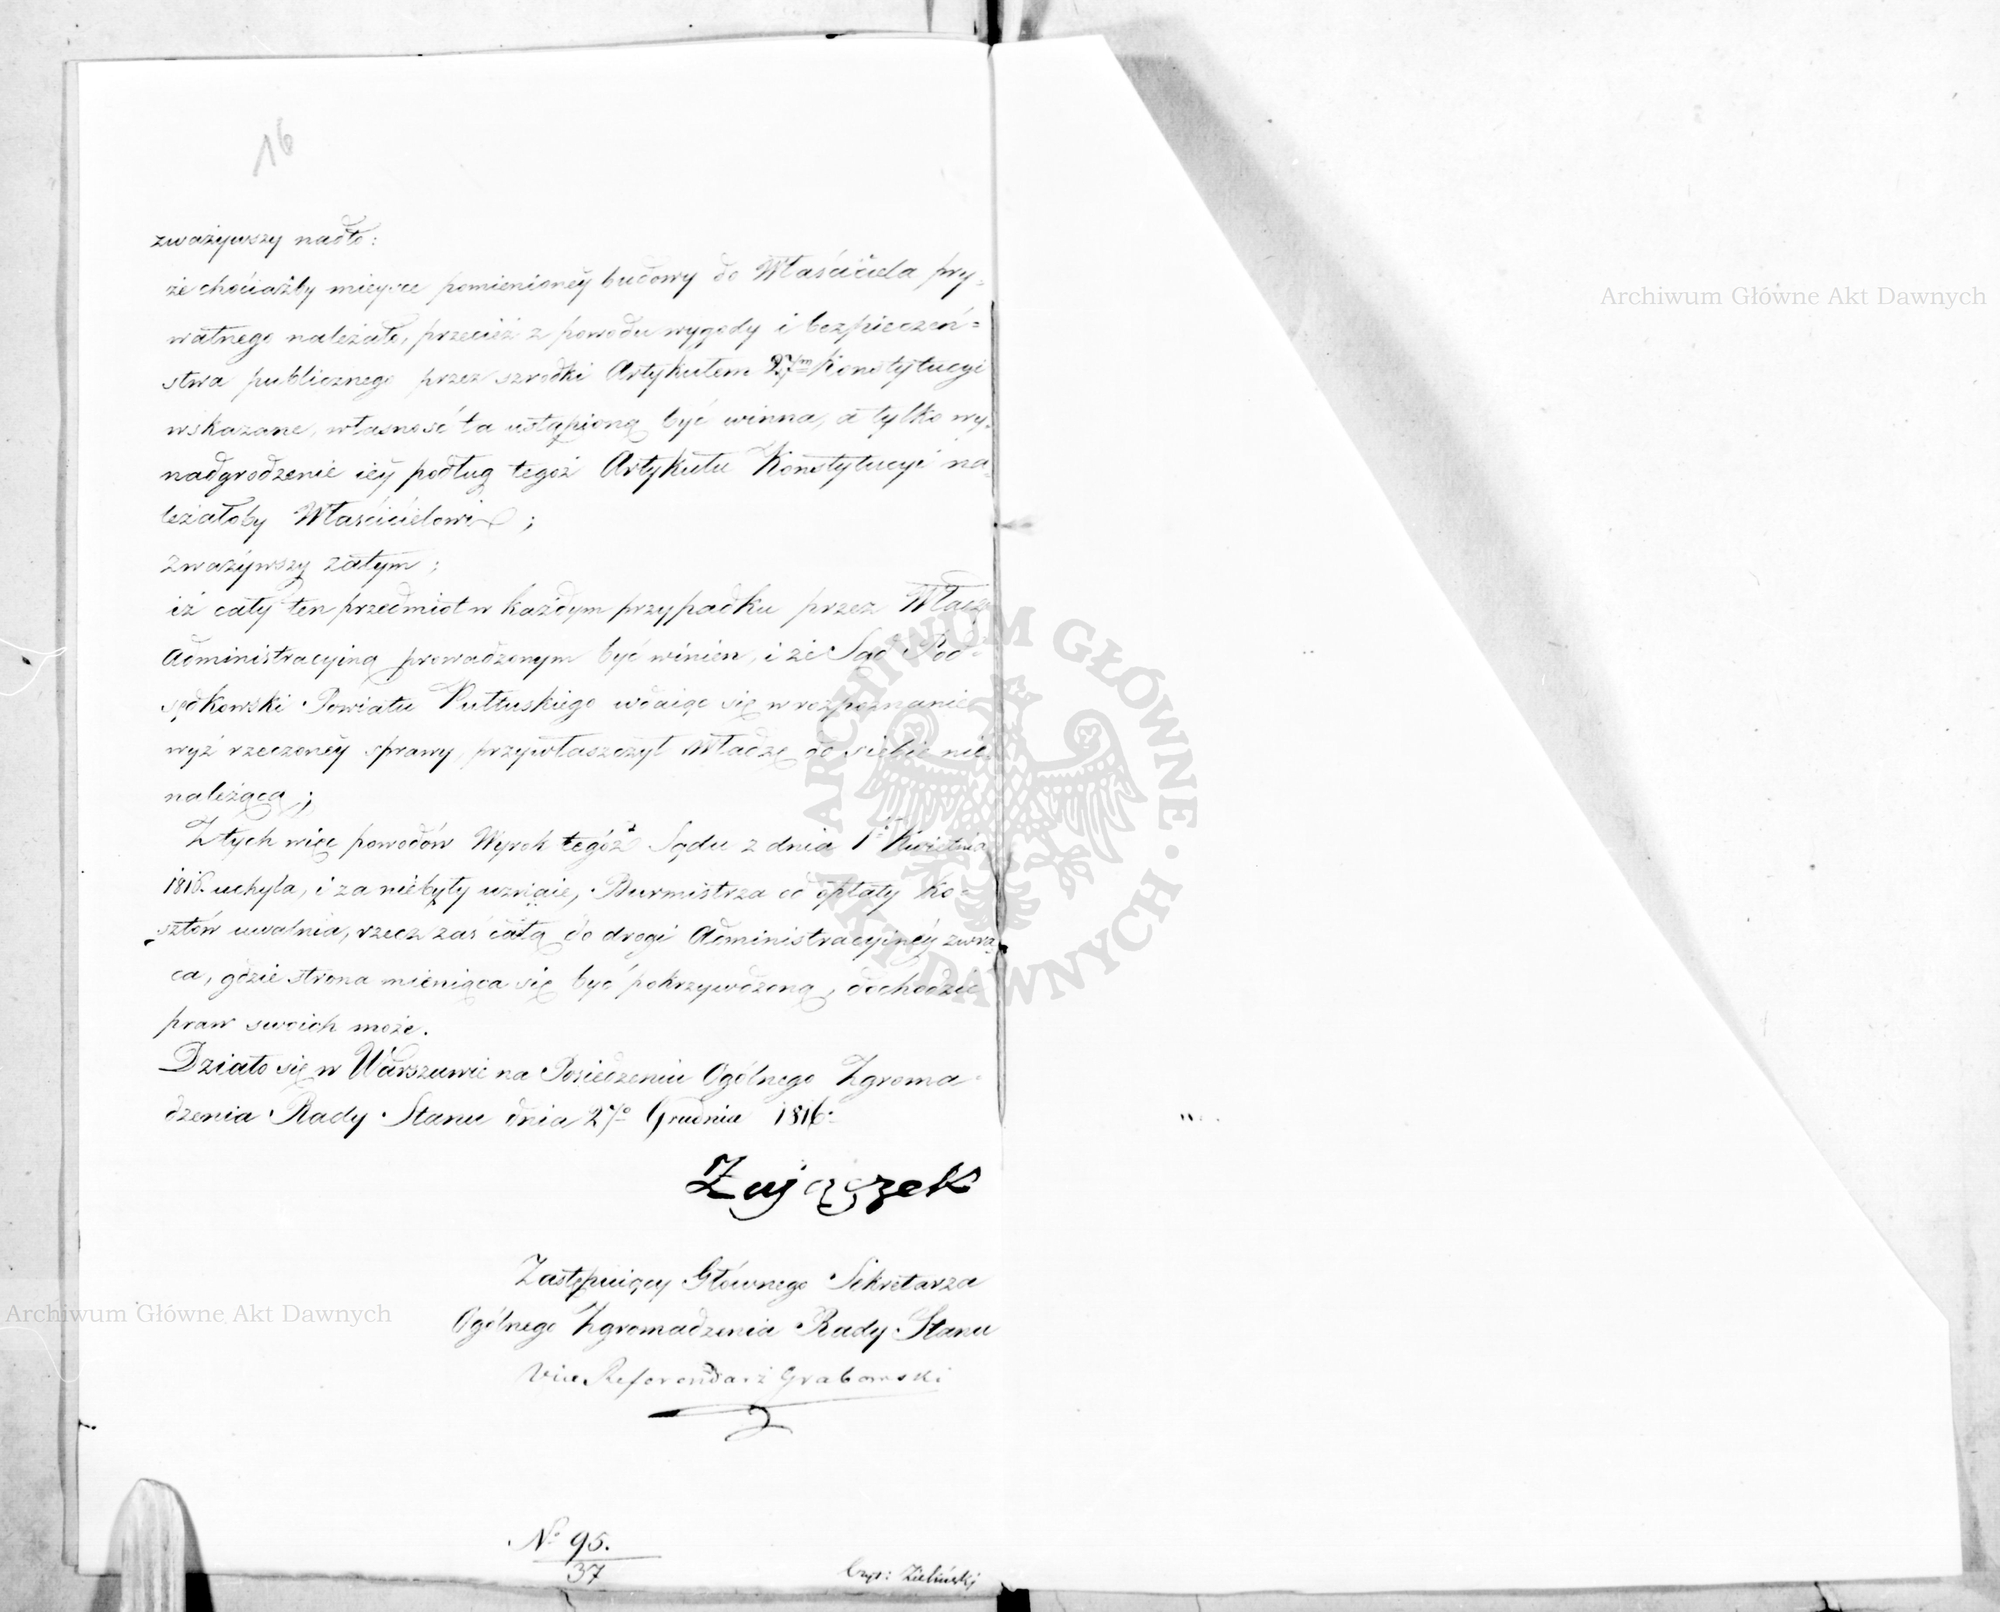 16
zważywszy nadto:
że chociażby mieysce pomienioney budowy do Właściciela pry-
watnego należało, przecież z powodu wygody i bezpieczeń=
stwa publicznego przez szrodki Artykułem 27m Konstytucyi
wskazane, własność ta ustąpioną być winna, a tylko wy-
nadgrodzenie iey podług tegoż Artykułu Konstytucyi na-
leżałoby Właścicielowi;
Zważywszy zatym;
iż cały ten przedmiot w każdym przypadku przez Władzę
Administracyiną prowadzonym być winien, i że Sąd Pod-
sędkowski Powiatu Pułtuskiego wdaiąc się w rozpoznanie
wyż rzeczoney sprawy, przywłaszczył władzę do siebie nie
należącą;
Z tych więc powodów Wyrok tegóż Sądu z dnia 1o Kwietnia
1816. uchyla, i za niebyły uznaie, Burmistrza od opłaty Ko-
sztów uwalnia, rzecz zaś całą do drogi Administracyiney zwra
ca, gdzie strona mieniąca się być pokrzywdzoną, dochodzić
praw swoich może.
Działo się w Warszawie na Posiedzeniu Ogólnego Zgroma-
dzenia Rady Stanu dnia 27o Grudnia 1816.
Zajączek
Zastępuiący Głównego Sekretarza
Ogólnego Zgromadzenia Rady Stanu
Vice Referendarz Grabowski
No 95.
37
Zieliński
Archiwum Główne Akt Dawnych
Archiwum Główne Akt Dawnych
ARCHIWUM GŁÓWNE · AKT DAWNYCH ·